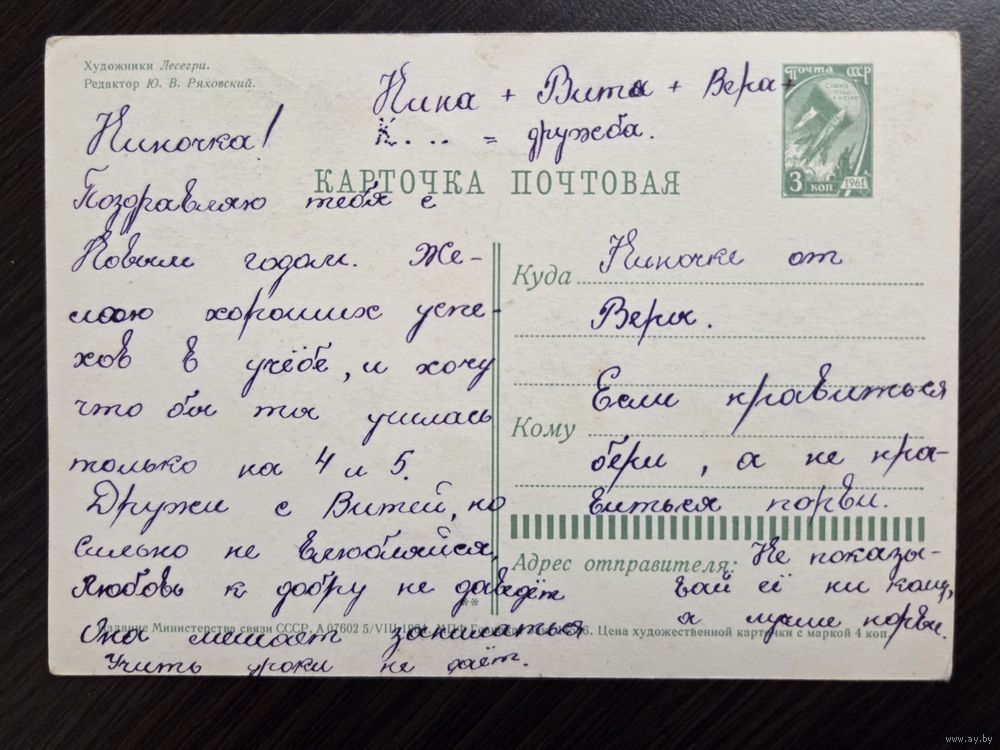 Художники Лесегри.
Редактор Ю. В. Ряховский.
Нина + Витя + Вера +
К. . . . = дружба.
Почта СССР
3 коп
1961
КАРТОЧКА ПОЧТОВАЯ
Ниночка!
Поздравляю тебя с
Новым годом. Же-
лаю хороших успе-
хов в учёбе, и хочу
что бы ты училась
только на 4 и 5.
Дружи с Витей, но
сильно не влюбляйся,
Любовь к добру не даведёт
Она мешает заниматься
Учить уроки не даёт.
Куда Ниночке от
Веры.
Если нравиться
Кому
бери, а не нра-
виться порви.
Адрес отправителя: Не показы-
вай её ни кому,
а лучше порви.
Издание Министерства связи СССР. А 07602 5/VIII Цена художественной карточки с маркой 4 коп.
www.ay.by